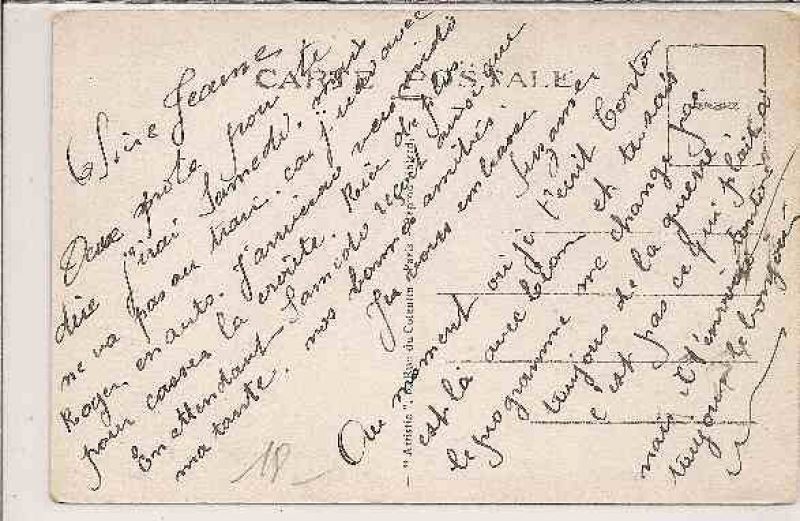 CARTE POSTALE
Chère Jeanne
Deux mots pour te
dire j'irai Samedi. mais
ne va pas au train. car j'irai avec
Roger en auto. J'arriverai vers midi
pour casser la croûte. Rien de plus
En attendant Samedi reçois ainsi que
ma tante. nos bonnes amitiés.
Je vous embrasse
Suzanne
Au moment où je t'écrit Tonton
est là avec et tu sais
le programme ne change pas
toujours de la guerre!
c'est pas ce qui plait à
mais il t'envoie
toujours le bonjour
- "Artistic", Rue du Cotentin, Paris
18